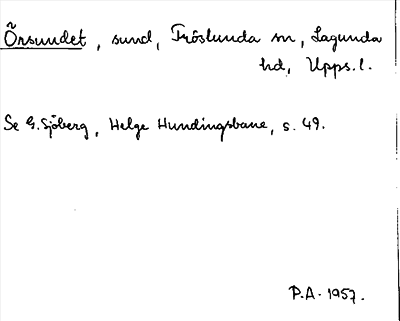 Örsundet, sund, Fröslunda sn, Lagunda
hd, Upps.l.
Se G. Sjöberg, Helge Hundingsbane, s. 49.
P.A. 1957.